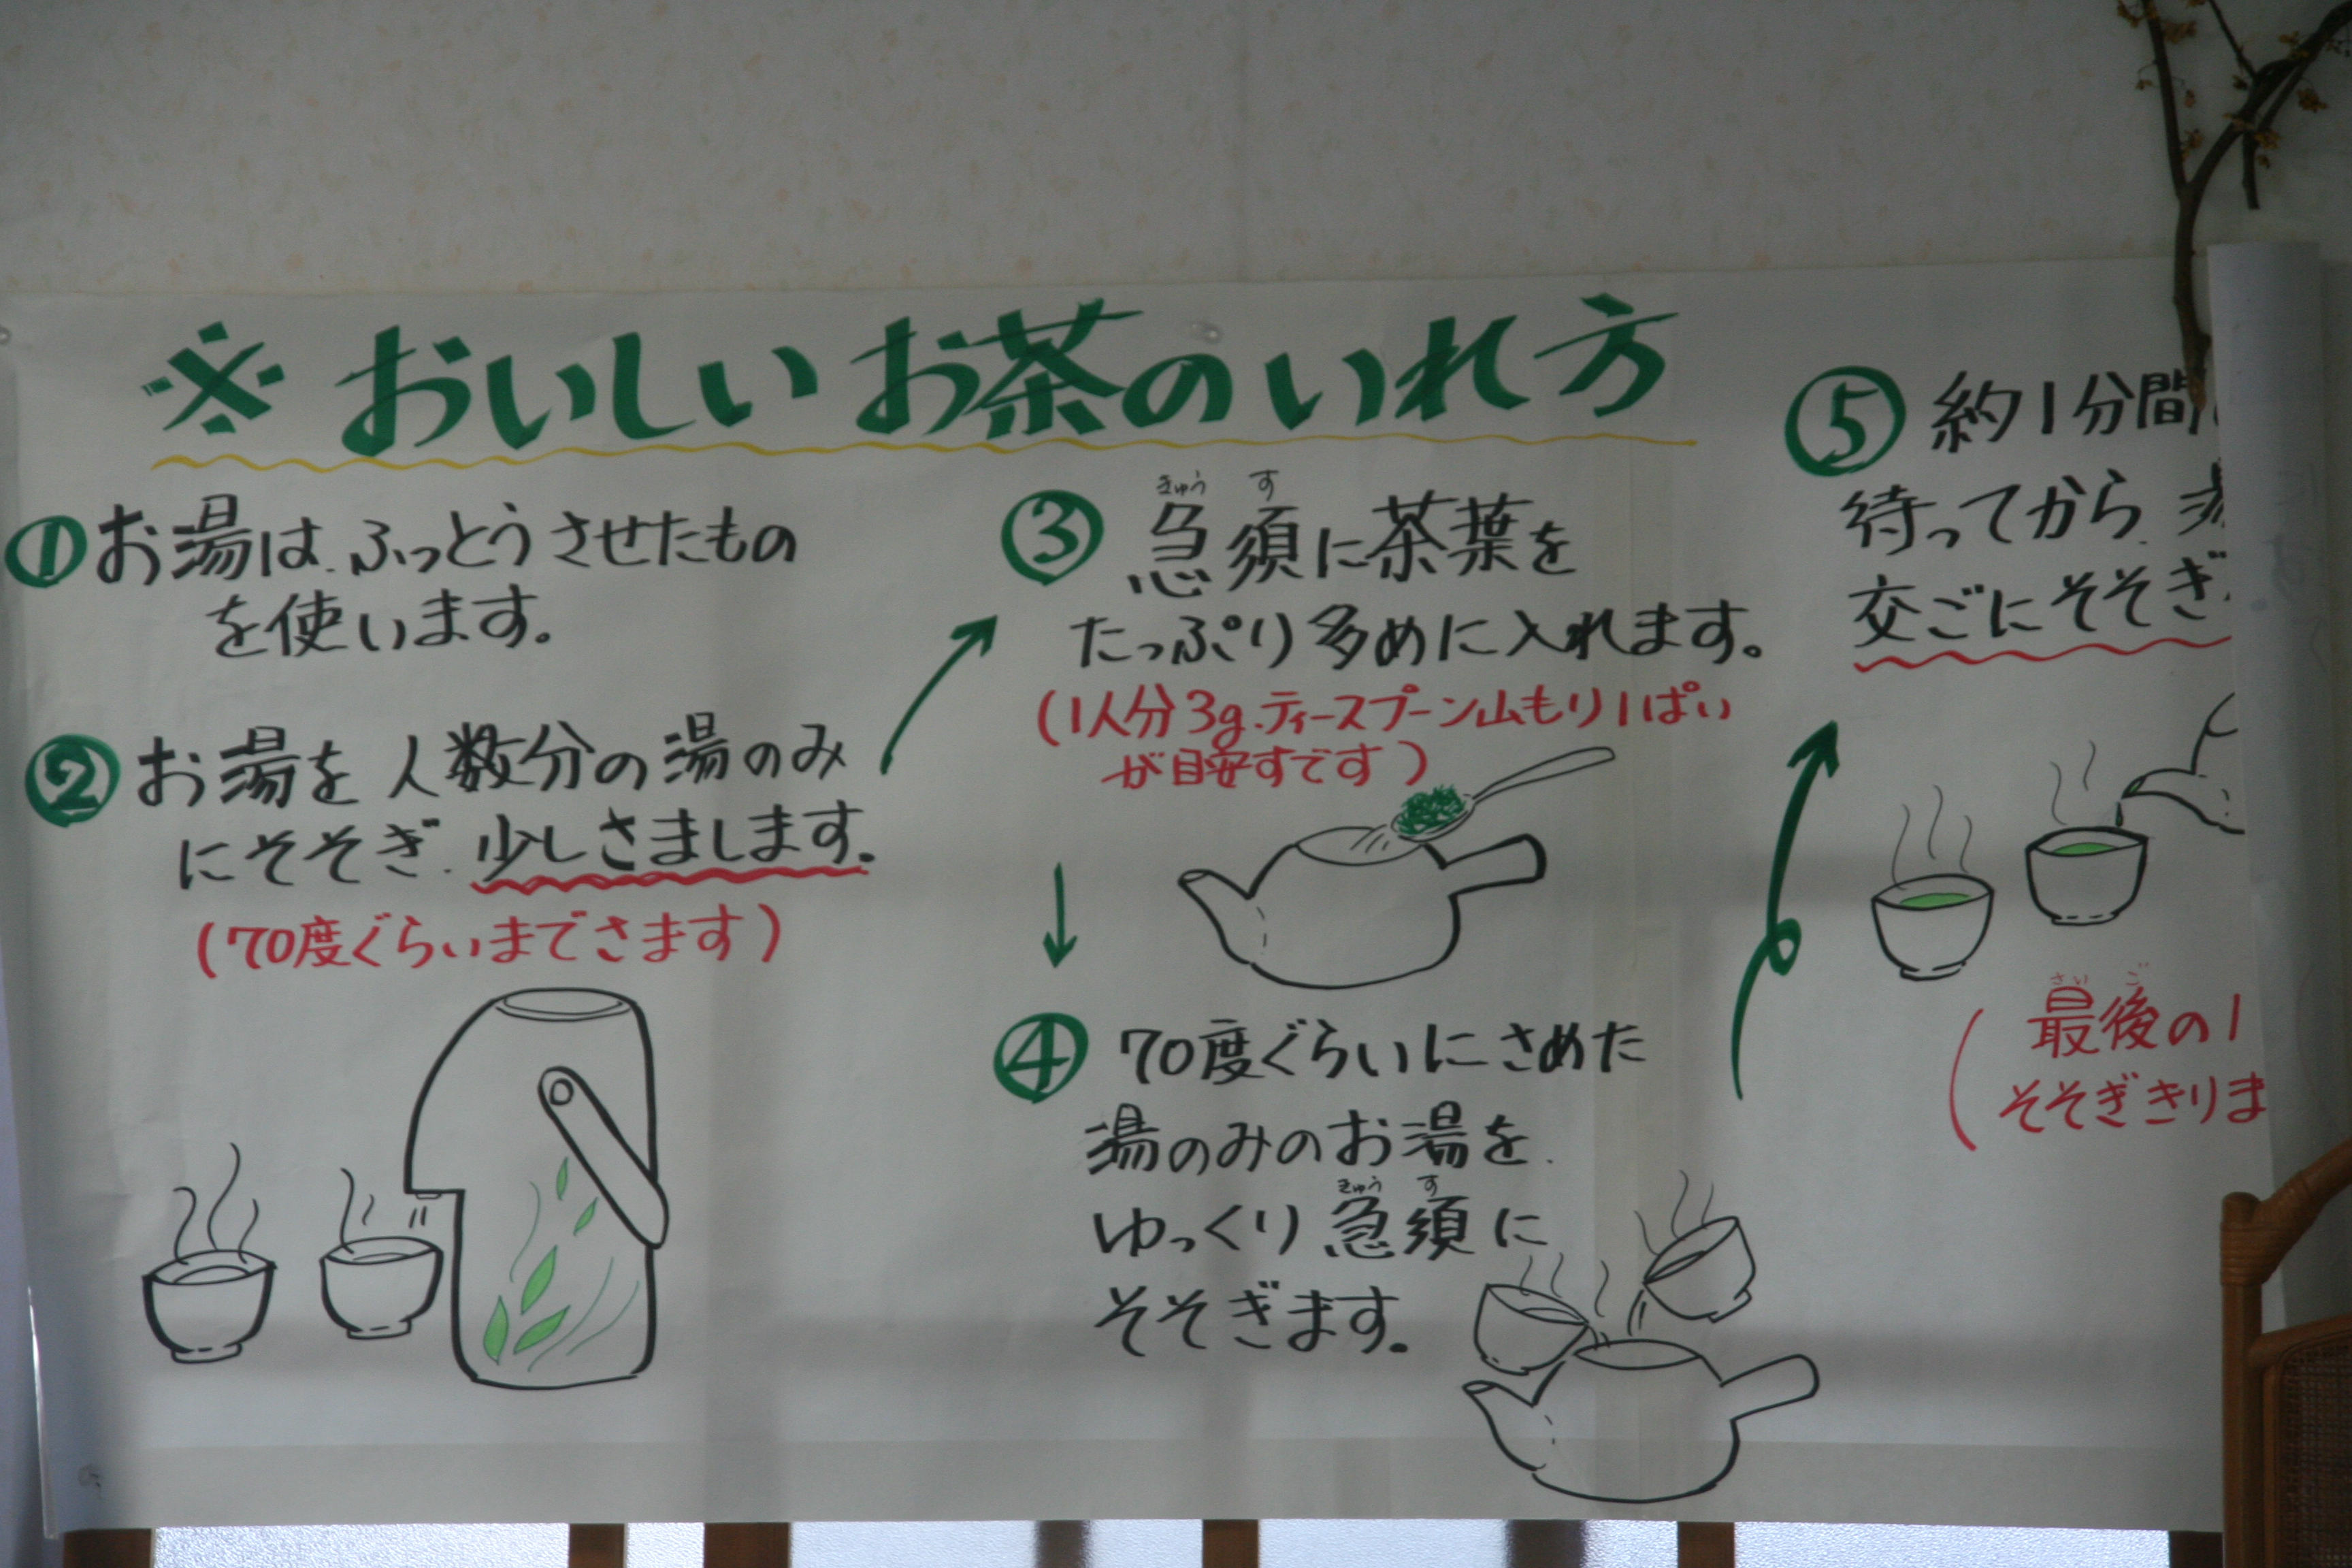 ※おいしいお茶のいれ方
①お湯は、ふっとうさせたもの
を使います。
②お湯を人数分の湯のみ
にそそぎ、少しさまします。
(70度ぐらいまでさます)
きゅうす
③急須に茶葉を
たっぷり多めに入れます。
(1人分3g、ティースプーン山もり1ぱい
が目安すです)
④70度ぐらいにさめた
湯のみのお湯を、
きゅうす
ゆっくり急須に
そそぎます。
⑤約1分間
待ってから、
交ごにそそぎ
さいご
(最後の1
そそぎきりま